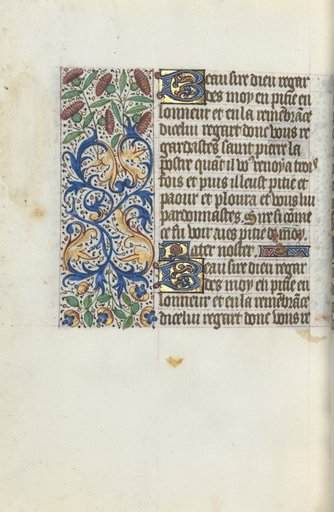 Beau sire dieu regar
des moy en pitie en
lonneur et en la remēbrāce
dicelui regart dont vous re
gardastes saint pierre la
vostre quāt il voꝰ renoya trois
fois et puis il eust pitie et
paour et ploura et vous lui
pardonnastes. Sire si cōme
ce fu voir aies pitie de moy.
Pater noster.
Beau sire dieu regar
des moy en pitie en
lonneur et en la remēbrāce
dicelui regart dont vous re